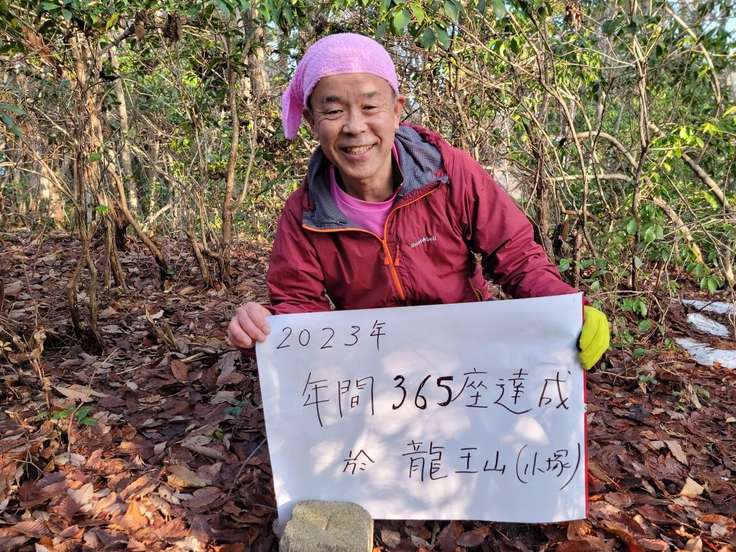 2023年
年間365座達成
於 龍王山(小塚)
mont-bell